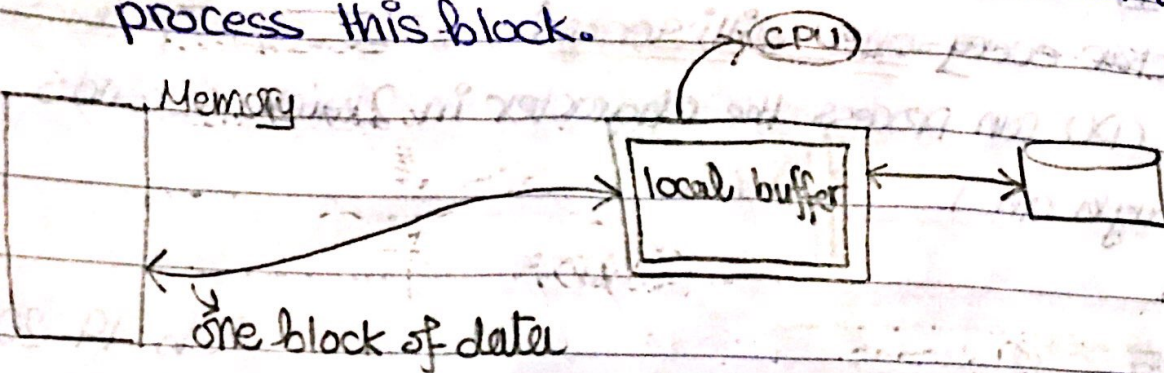 process this block.
CPU
Memory
local buffer
one block of data